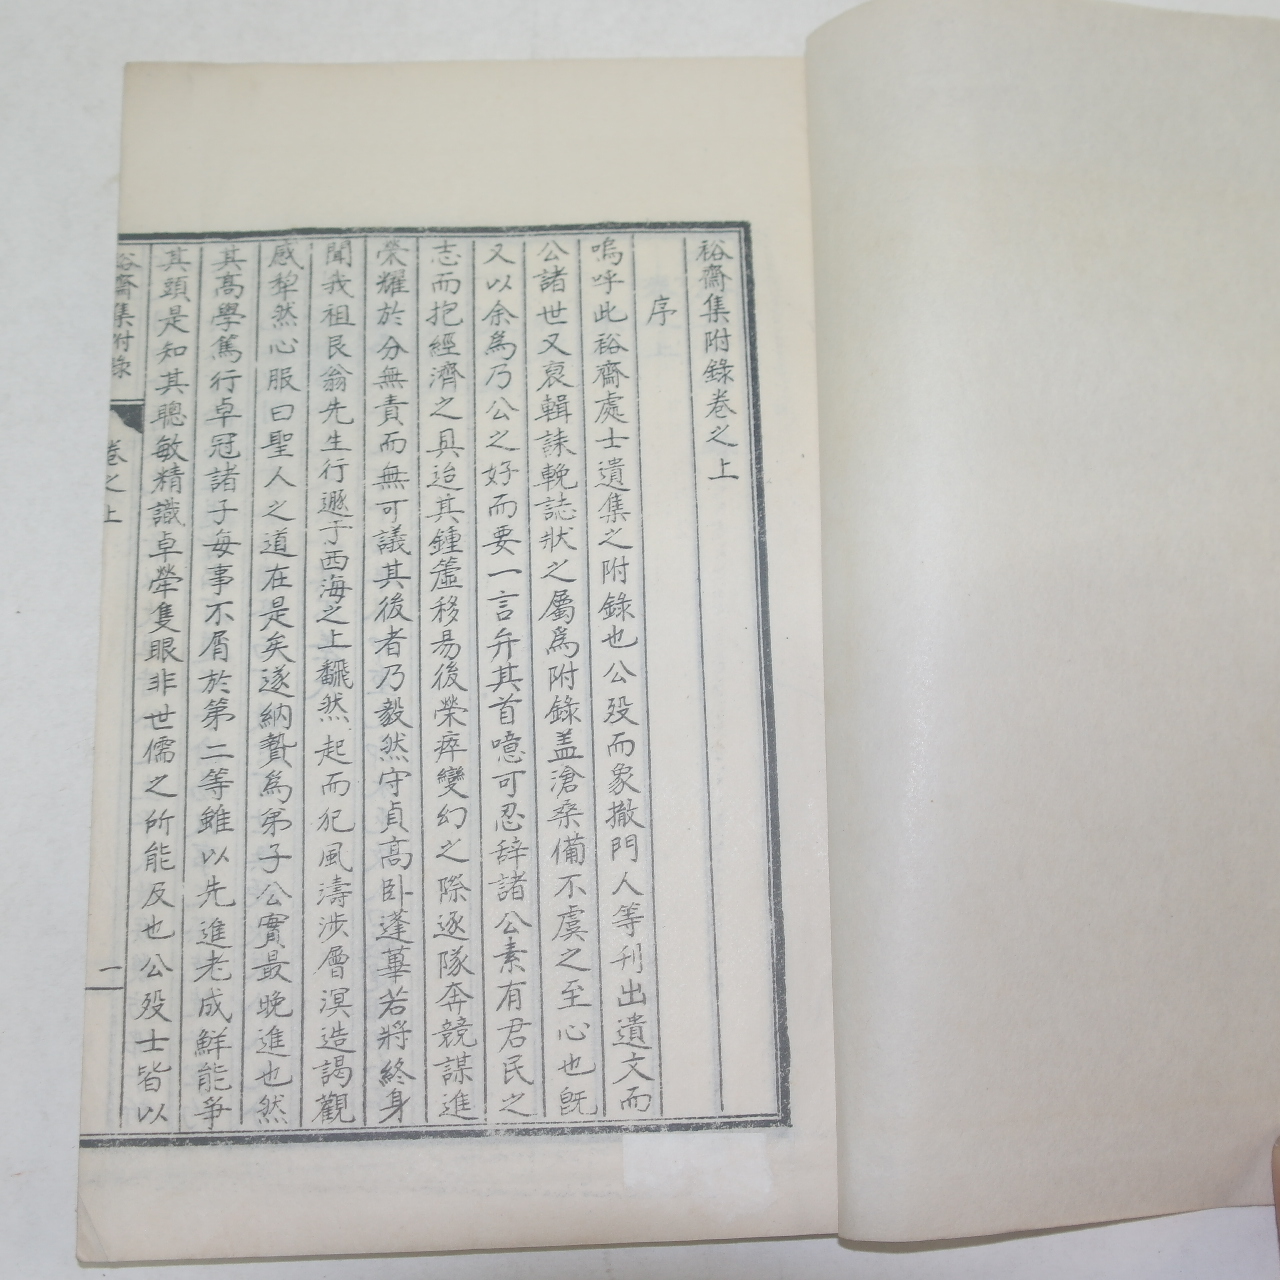 裕齋集附錄卷之上
序
嗚呼此裕齋處士遺集之附錄也公歿而象撤門人等刊出遺文而
公諸世又裒輯誄輓誌狀之屬爲附錄盖滄桑備不虞之至心也旣
又以余爲乃公之好而要一言弁其首噫可忍辞諸公素有君民之
志而抱經濟之具迨其鍾簴移易後榮瘁變幻之際逐隊奔競謀進
榮耀於分無責而無可議其後者乃毅然守貞高卧蓬蓽若將終身
聞我祖艮翁先生行遯于西海之上飜然起而犯風濤涉層溟造謁觀
感犂然心服曰聖人之道在是矣遂納贄爲弟子公實最晩進也然
其高學篤行卓冠諸子每事不屑於第二等雖以先進老成鮮能爭
其頭是知其聰敏精識卓犖隻眼非世儒之所能及也公歿士皆以
裕齋集附錄
卷之上
一